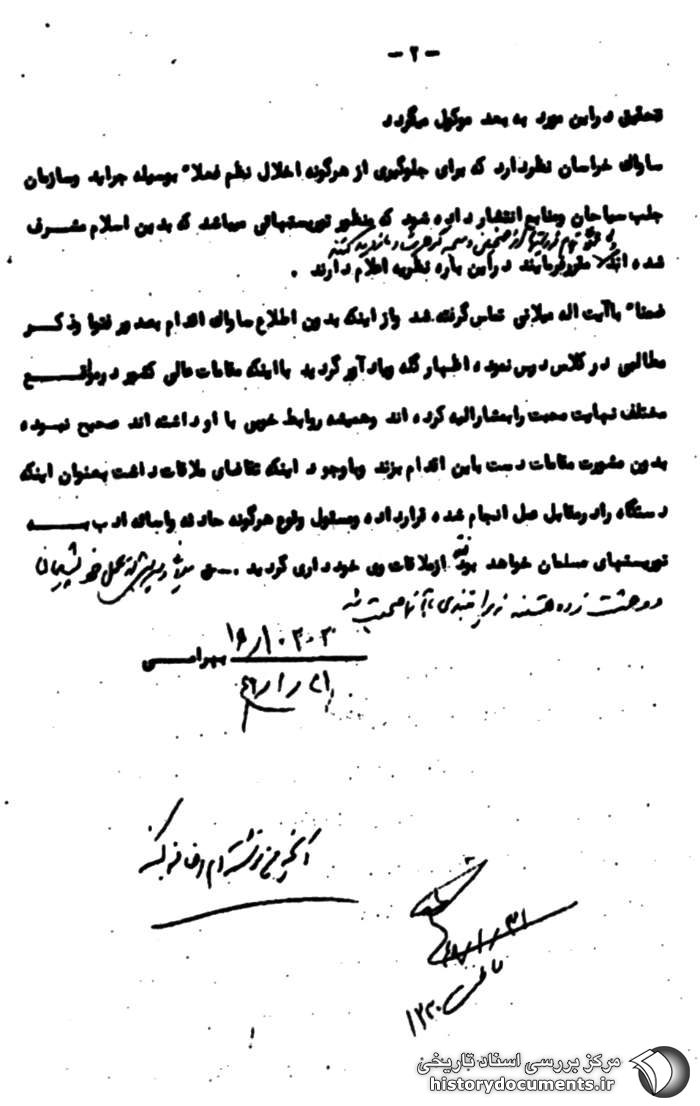 - ۲ -
تحقیق در این مورد به بعد موکول میگردد
ساواک خراسان نظر دارد که برای جلوگیری از هرگونه اخلال نظم فعلاً بوسیله جراید و سازمان
جلب سیاحان و منابع انتشار داده شود که منظور توریستهائی میباشد که بدین اسلام مشرف
شده اند مقرر فرمایند در این باره نظریه اعلام دارند .
ضمناً با آیت اله میلانی تماس گرفته شد و از اینکه بدون اطلاع ساواک اقدام بصدور فتوا و ذکر
مطالبی در کلاس درس نموده اظهار گله و یادآور گردید با اینکه مقامات عالی کشور در مواقع
مختلف نهایت محبت را بمشارالیه کرده اند و همیشه روابط خوبی با او داشته اند صحیح نبوده
بدون مشورت مقامات دست باین اقدام بزند و با وجود اینکه تقاضای ملاقات داشت بعنوان اینکه
دستگاه را در مقابل عمل انجام شده قرار داده و مسئول وقوع هرگونه حادثه و اسائه ادب به
توریستهای مسلمان خواهد بود از ملاقات وی خودداری گردید .
و وحشت زده هستند زیرا بتندی با آنها صحبت شد
بهرامی
۲۱ ر ۱ ر ۴۶
آنچه من نوشته ام اضافه کنید
۳۱ ر ۱
۱۲۳۰
مرکز بررسی اسناد تاریخی
historydocuments.ir